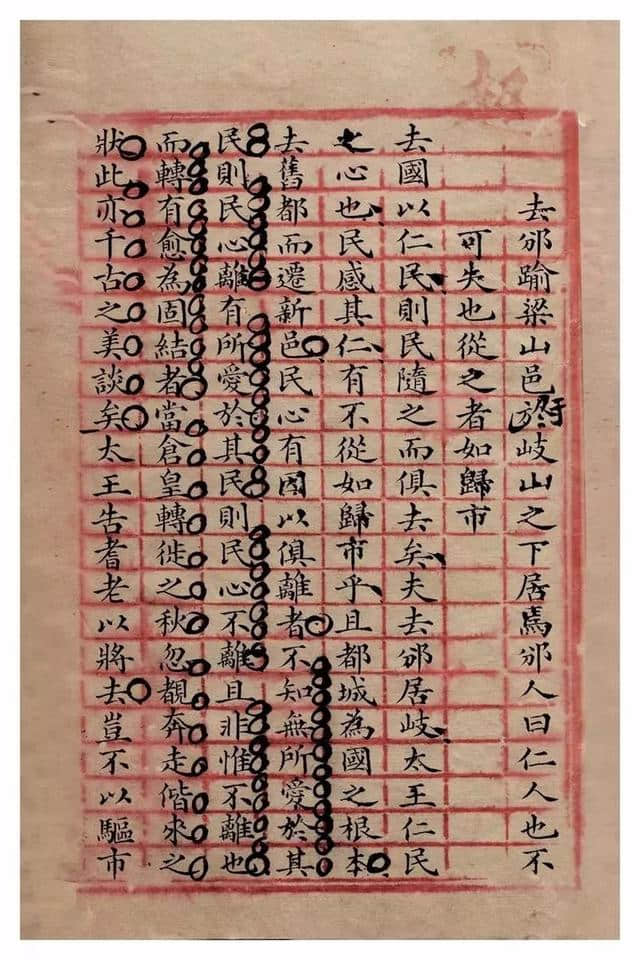 去邠踰梁山邑於岐山之下居焉邠人曰仁人也不
于
可失也從之者如歸市
去國以仁民則民隨之而俱去矣夫去邠居岐太王仁民
之心也民感其仁有不從如歸市乎且都城為國之根本
去舊都而遷新邑民心有因以俱離者不知無所愛於其
民則民心離有所愛於其民則民心不離且非惟不離也
而轉有愈為固結者當倉皇轉徙之秋忽覩奔走偕來之
狀此亦千古之美談矣太王告耆老以將去豈不以驅市